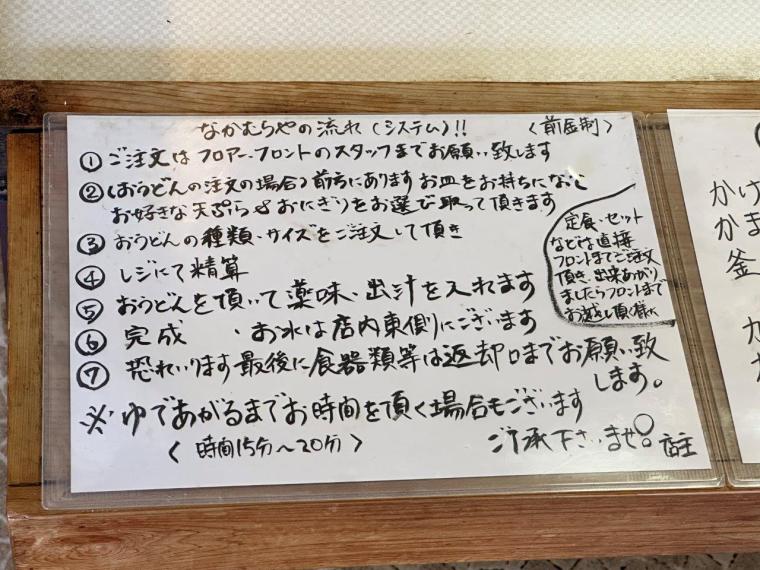 なかむらやの流れ(システム)!! 〈前金制〉
① ご注文はフロアー、フロントのスタッフまでお願い致します
② (おうどんの注文の場合)前方にありますお皿をお持ちになって
お好きな天ぷらやおにぎりをお選び取って頂きます
③ おうどんの種類・サイズをご注文して頂き
④ レジにて精算
⑤ おうどんを頂いて薬味、出汁を入れます
⑥ 完成 ・お水は店内東側にございます
⑦ 恐れいります最後に食器類等は返却口までお願い致
します。
※ ゆであがるまでお時間を頂く場合もございます
〈時間15分〜20分〉 ご了承下さいませ。店主
定食・セット
などは直接
フロントまでご注文
頂き、出来あがり
ましたらフロントまで
お越し頂く様に
かけ
かま
釜